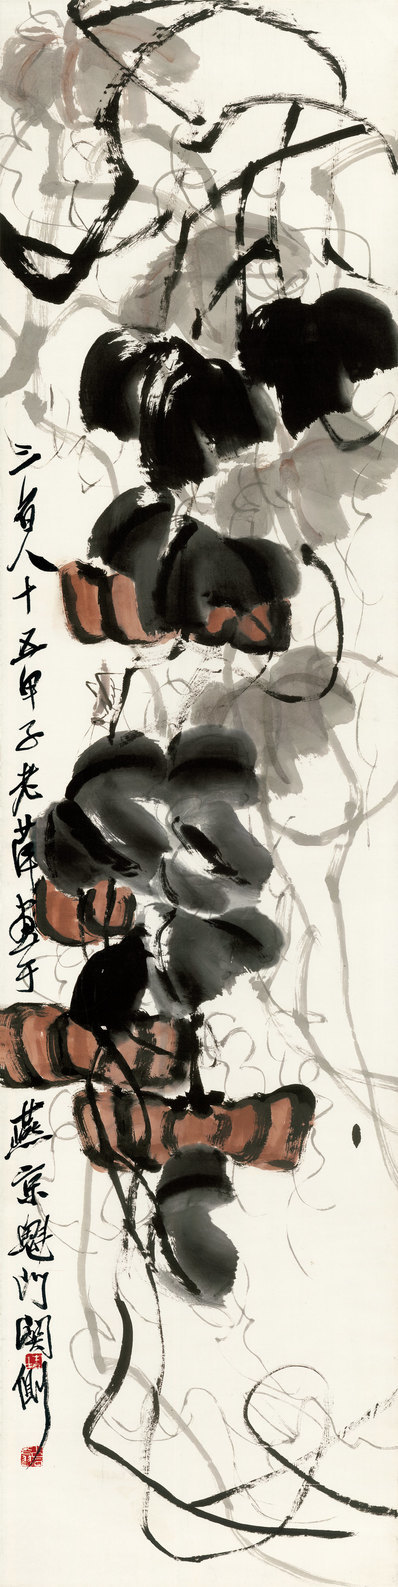 三百八十五甲子老萍画于
燕京魁门关侧